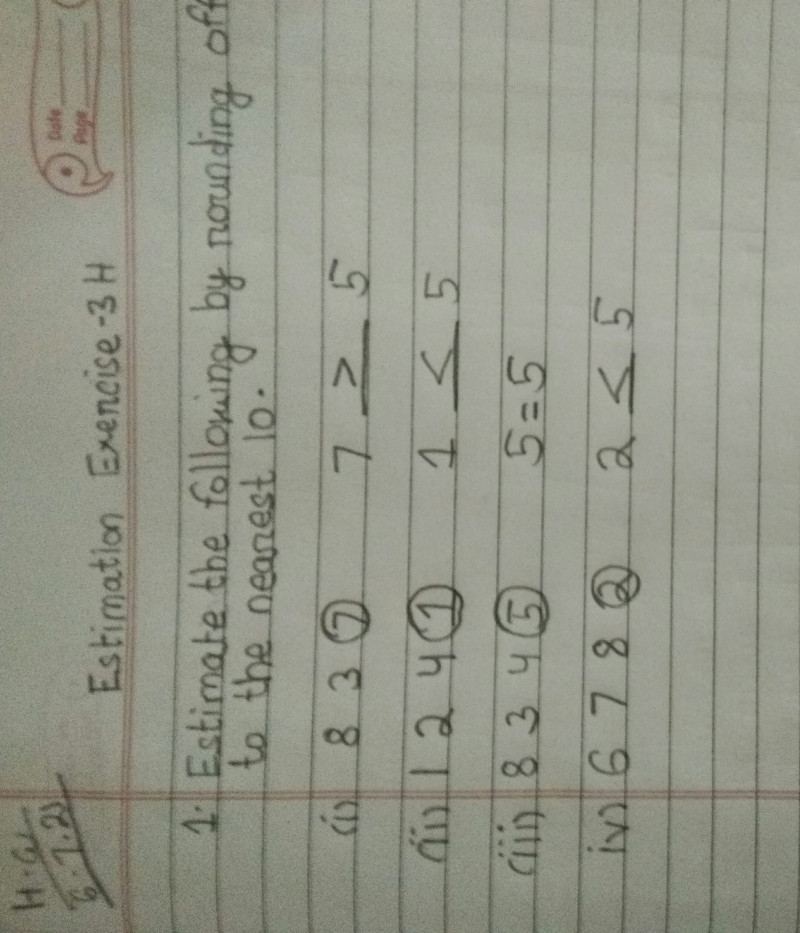 Date
Page
Estimation Exercise-3H
1. Estimate the following by rounding off
to the nearest 10.
(i) 8 3 7 7 > 5
(ii) 1 2 4 1 1 < 5
(iii) 8 3 4 5 5=5
iv) 6 7 8 2 2 < 5